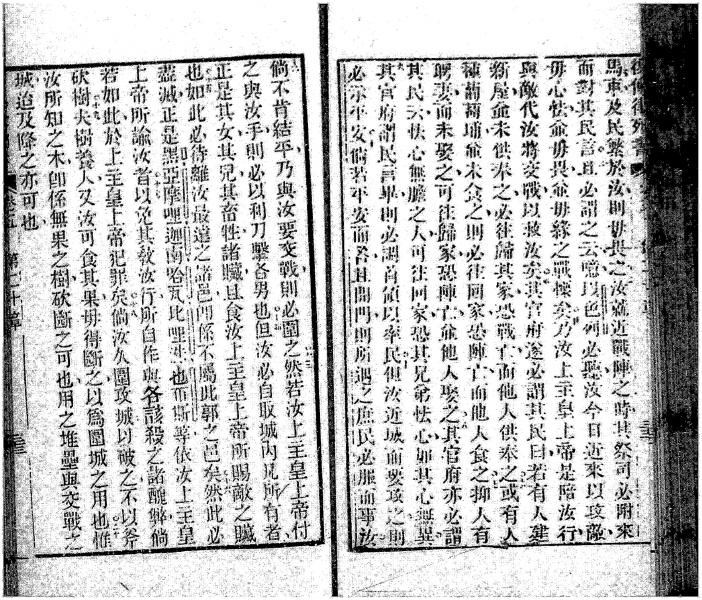 馬車及民繁於汝則毋畏之汝就近戰陣之時其祭司必附來
而對其民言且必謂之云噫以色列必聽汝今日近來以攻敵
毋心怯並毋畏並毋緣之戰慄矣乃汝上主皇上帝是陪汝行
與敵代汝將交戰以救汝矣其官府遂必謂其民曰若有人建
新屋並未供奉之必往歸其家恐戰亡而他人供奉之或有人
種葡萄埔並未食之則必往回家恐陣亡而他人食之抑人有
聘妻而未娶之可往歸家恐陣亡並他人娶之其官府亦必謂
其民云怯心無膽之人可往回家恐其兄弟怯心如其心無異
其官府謂民言畢則必調首領以率民俱汝近城而要攻之則
必示平安倘若平安而答且開門則所遇之庶民必服而事汝
倘不肯結平乃與汝要交戰則必圍之然若汝上主皇上帝付
之與汝手則必以利刀擊各男也但汝必自取城內見所有者
正是其女其兄其畜牲諸贓且食汝上主皇上帝所賜敵之贓
也如此必待離汝最遠之諸邑門係不屬此郭之邑矣然此必
盡滅正是黑亞摩哩迦南哈瓦比哩 也布斯等依汝上主皇
上帝所諭汝者以免其教汝行所自作與各該殺之諸醜弊倘
若如此於上主皇上帝犯罪矣倘汝久圍攻城以破之不以斧
砍樹夫樹養人又汝可食其果毋得斷之以為圍城之用也惟
汝所知之木即係無果之樹砍斷之可也用之堆壘與交戰之
城迨及降之亦可也